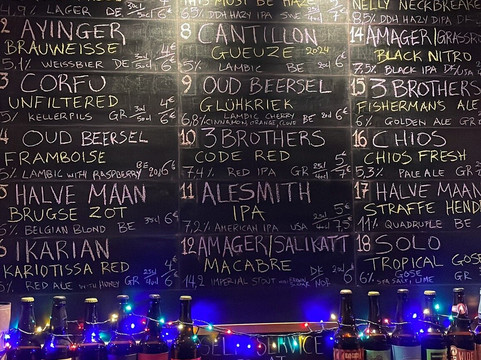 4,9% LAGER DE 6
THIS MUST BE HAZE
6,5% DDH HAZY IPA SWE
NELLY NECKBREAKER
8,5% DDH HAZY DIPA
2 AYINGER
BRAUWEISSE
5,1% WEISSBIER DE
8 CANTILLON
GUEUZE 2024
5% LAMBIC BE 6€
14 AMAGER/GRASSRO
BLACK NITRO
7,5% BLACK IPA
3 CORFU
UNFILTERED
5% KELLERPILS GR
9 OUD BEERSEL
GLÜHKRIEK
6,8% LAMBIC CHERRY
CINNAMON, ORANGE, CLOVE BE 6€
15 3 BROTHERS
FISHERMANS ALE
6% GOLDEN ALE GR
4 OUD BEERSEL
FRAMBOISE
5% LAMBIC WITH RASPBERRY BE 20cl 6€
10 3 BROTHERS
CODE RED
7,4% RED IPA GR
16 CHIOS
CHIOS FRESH
5,3% PALE ALE GR
5 HALVE MAAN
BRUGSE ZOT
6% BELGIAN BLOND BE 6€
11 ALESMITH
IPA
7,2% AMERICAN IPA USA
17 HALVE MAAN
STRAFFE HEND
11% QUADRUPLE BE
6 IKARIAN
KARIOTISSA RED
5% RED ALE WITH HONEY GR
12 AMAGER/SALIKATT
MACABRE
14,2 IMPERIAL STOUT DE NOR 6€
18 SOLO
TROPICAL GOSE
6% GOSE
SEA SALT, LIME GR
SELF SERVICE
AT